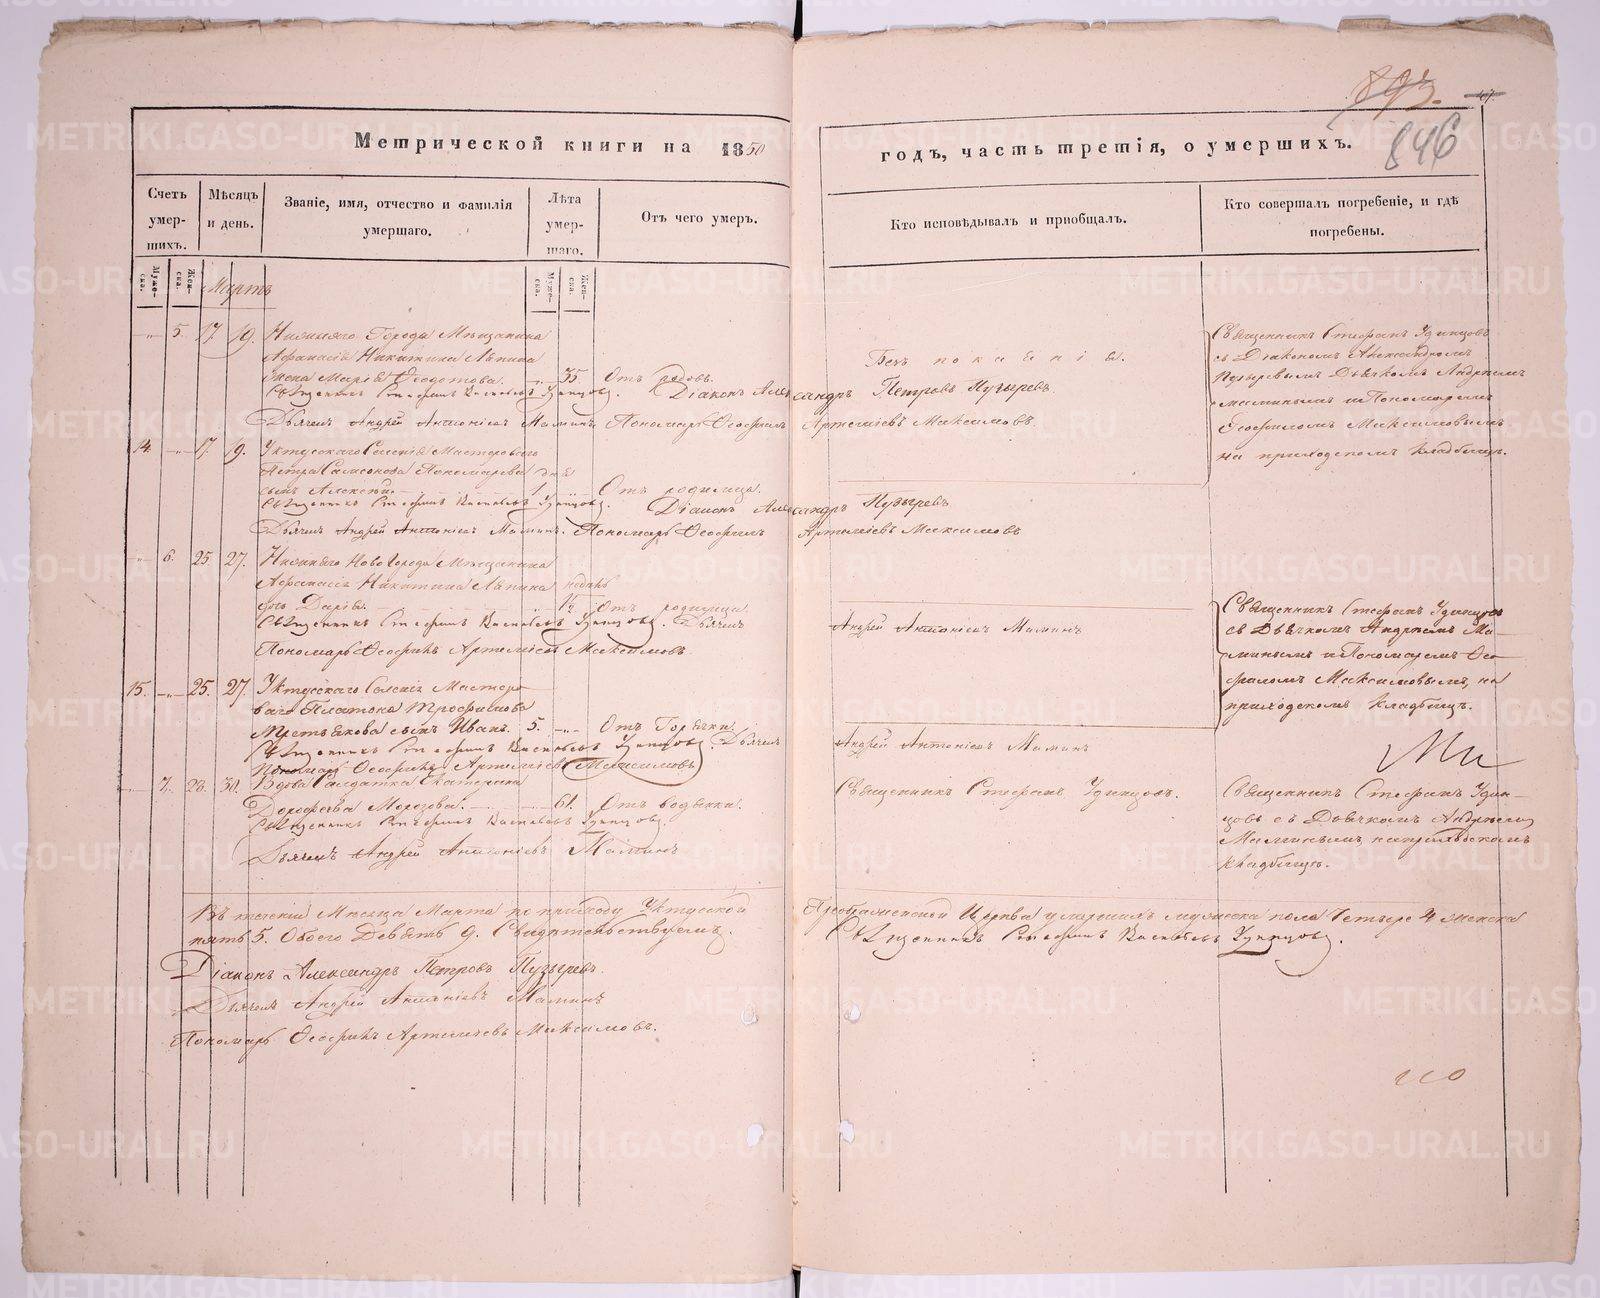 893.
846
Метрической книги на 1850
годъ, часть третія, о умершихъ.
Счетъ умер-
шихъ.
Мѣсяцъ
и день.
Званіе, имя, отчество и фамилія
умершаго.
Лѣта
умер-
шаго.
Отъ чего умеръ.
Кто исповѣдывалъ и пріобщалъ.
Кто совершалъ погребеніе, и гдѣ
погребены.
Муже-
ска.
Жен-
ска.
Муже-
ска.
Жен-
ска.
Мартъ
5. 17. 19. Нижняго Города Мѣщанина
Афанасія Никитина Лапина
жена Марія Феодотова. 35. Отъ родовъ.
Безъ покаянія.
Священникъ Стефанъ Васильевъ Удинцовъ. Діаконъ Александръ Петровъ Пузыревъ
Дьячекъ Андрей Антоніевъ Маминъ Пономарь Феофилъ Артеміевъ Максимовъ
Священникъ Стефанъ Удинцовъ
съ Діакономъ Александромъ
Пузыревымъ Дьячкомъ Андреемъ
Маминымъ и Пономаремъ
Феофиломъ Максимовымъ
на приходскомъ кладбищѣ.
14. 17. 19. Уктусскаго Селенія Мастероваго
Петра Самсонова Пономарева дня
сынъ Алексѣй. 1 Отъ родимца.
Священникъ Стефанъ Васильевъ Удинцовъ. Діаконъ Александръ Пузыревъ
Дьячекъ Андрей Антоніевъ Маминъ. Пономарь Феофилъ Артеміевъ Максимовъ
6. 25. 27. Нижняго Новогорода Мѣщанина
Афанасія Никитина Лапина недѣль
дочь Дарія. 1½ Отъ родимца.
Священникъ Стефанъ Васильевъ Удинцовъ. Дьячекъ Андрей Антоніевъ Маминъ
Пономарь Феофилъ Артеміевъ Максимовъ.
Священникъ Стефанъ Удинцовъ
съ Дьячкомъ Андреемъ Ма-
минымъ и Пономаремъ Фео-
филомъ Максимовымъ, на
приходскомъ кладбищѣ.
15. 25. 27. Уктусскаго Селенія Мастеро-
ваго Платона Трофимова
сынъ Иванъ. 5. Отъ Горячки.
Священникъ Стефанъ Васильевъ Удинцовъ. Дьячекъ Андрей Антоніевъ Маминъ
Пономарь Феофилъ Артеміевъ Максимовъ
7. 28. 30. Вдова Солдатка Екатерина
Дорофеева Морозова. 61. Отъ водянки.
Священникъ Стефанъ Удинцовъ.
Священникъ Стефанъ Васильевъ Удинцовъ.
Дьячекъ Андрей Антоніевъ Маминъ
Священникъ Стефанъ Удин-
цовъ съ Дьячкомъ Андреемъ
Маминымъ на приходскомъ
кладбищѣ.
Въ теченіи Мѣсяца Марта по приходу Уктусской Преображенской Церкви умершихъ мужеска пола Четыре 4 женска
пять 5. Обоего Девять 9. Свидѣтельствуемъ. Священникъ Стефанъ Васильевъ Удинцовъ.
Діаконъ Александръ Петровъ Пузыревъ.
Дьячекъ Андрей Антоніевъ Маминъ
Пономарь Феофилъ Артеміевъ Максимовъ.
METRIKI.GASO-URAL.RU